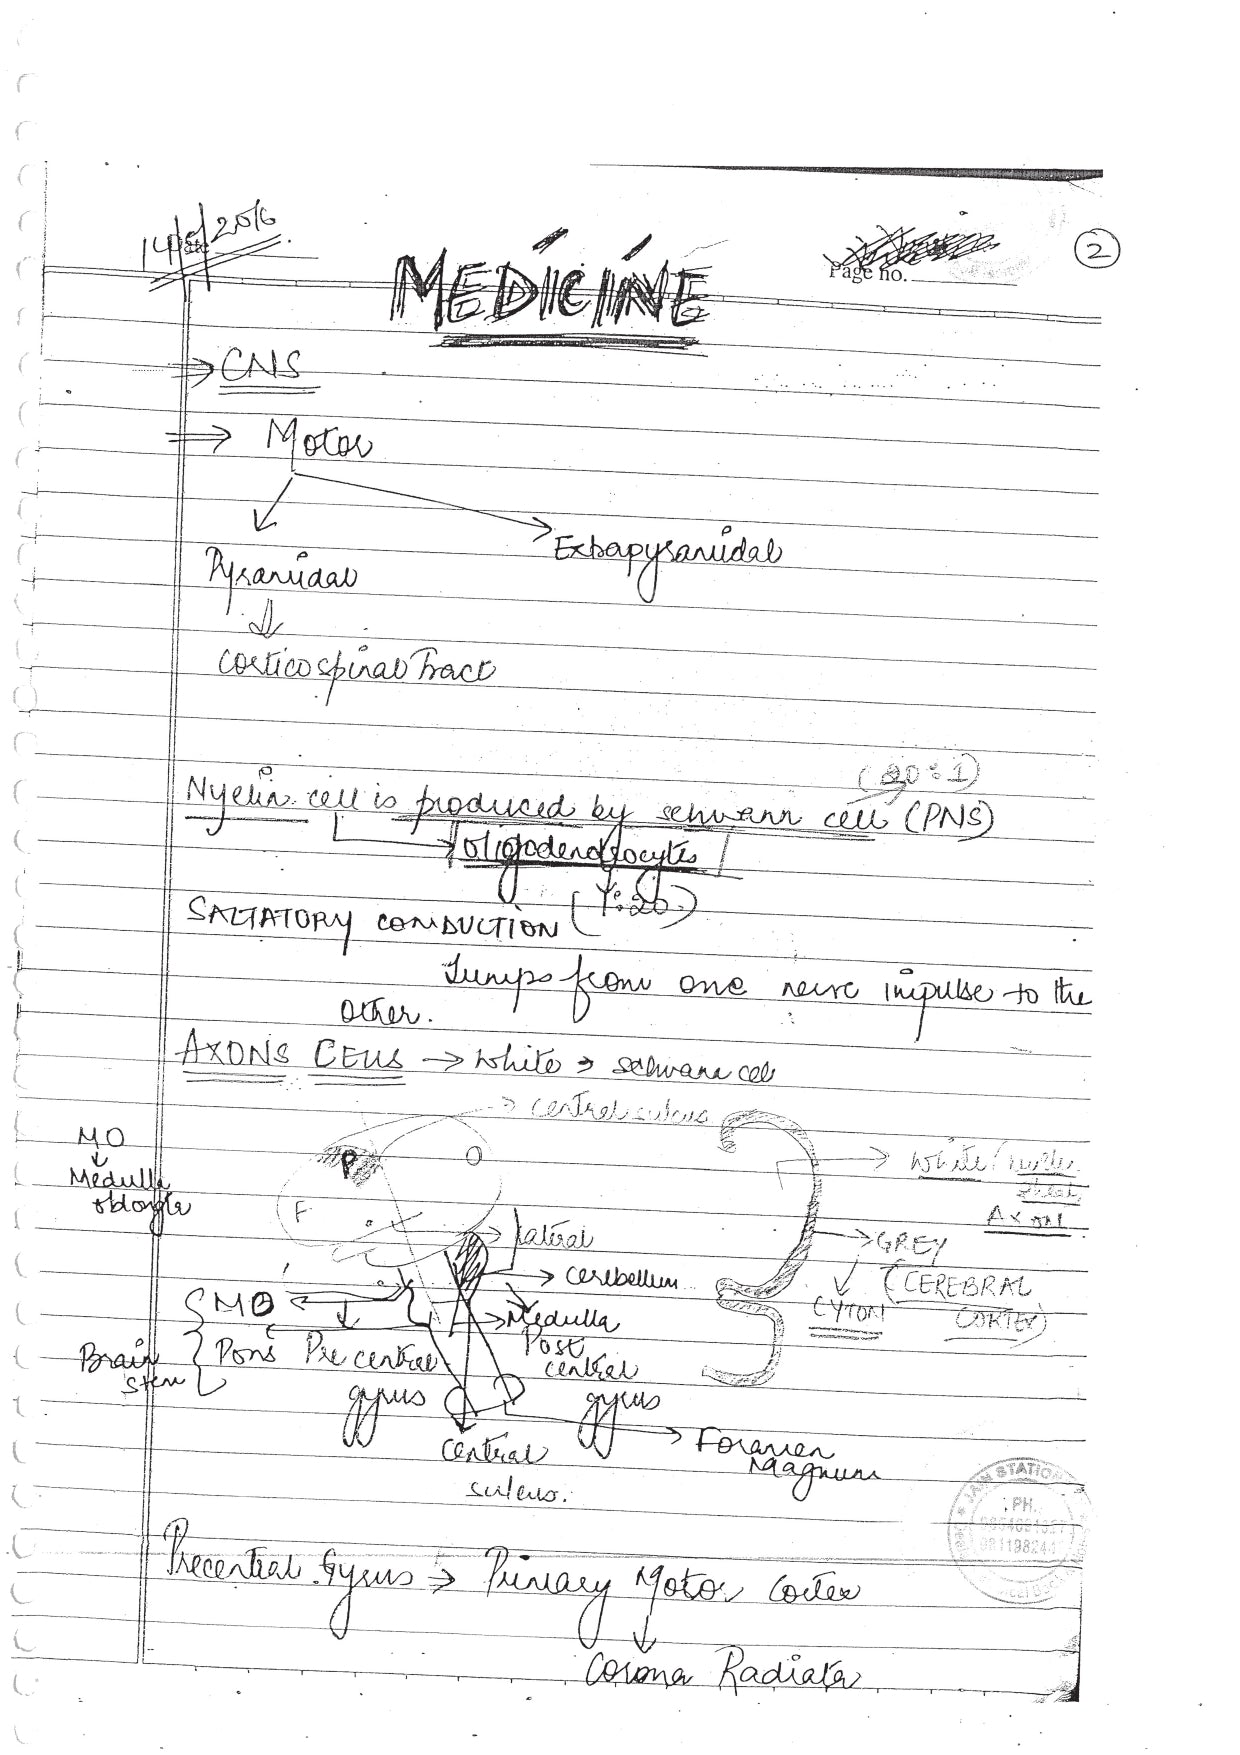 14/5/2016
Date
Page no.
2
MEDICINE
⇒ CNS
⇒ Motor
Pyramidal
Extrapyramidal
Corticospinal Tract
(20:1)
Myelin cell is produced by schwann cell (PNS)
oligodendrocytes
SALTATORY CONDUCTION (1:20)
Jumps from one nerve impulse to the
other.
AXONS CELLS → White → schwann cell
→ central sulcus
MO
Medulla
oblongta
P
O
F
Lateral
→ cerebellum
→ Medulla
White /
Axon
GREY
(CEREBRAL
CORTEX)
CYTON
MO
Brain
stem
Pons
Pre central
gyrus
Post
central
gyrus
central
sulcus.
Foramen
Magnum
JAIN STATIO
PH.
Precentral Gyrus → Primary Motor Cortex
Corona Radiata